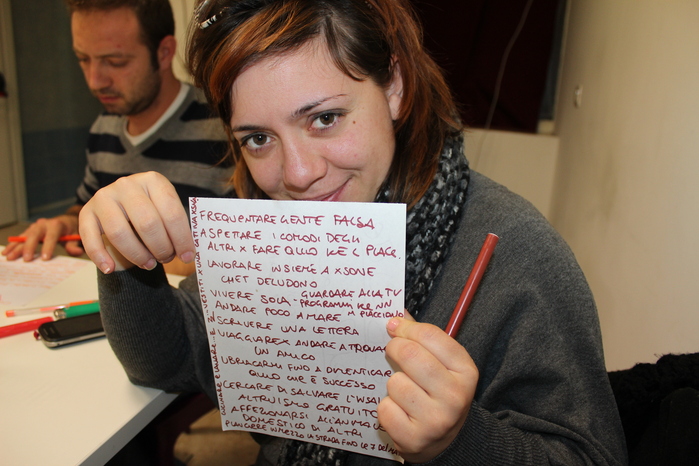 FREQUENTARE GENTE FALSA
ASPETTARE I COMODI DEGLI
ALTRI X FARE QLLO KE L PIACE.
LAVORARE INSIEME A XSONE
CHE T DELUDONO
VIVERE SOLA - GUARDARE ALLA TV
PROGRAMMI KE NN
ANDARE POCO A MARE M PIACCIONO
SCRIVERE UNA LETTERA
VIAGGIARE X ANDARE A TROVARE
UN AMICO
UBRIACARMI FINO A DIMENTICARE
QLLO CHE È SUCCESSO
CERCARE DI SALVARE L'
ALTRUISMO GRATUITO
AFFEZIONARSI ALL'ANIMALE
DOMESTICO DI ALTRI
PIANGERE IN MEZZO LA STRADA FINO LE 7 DEL